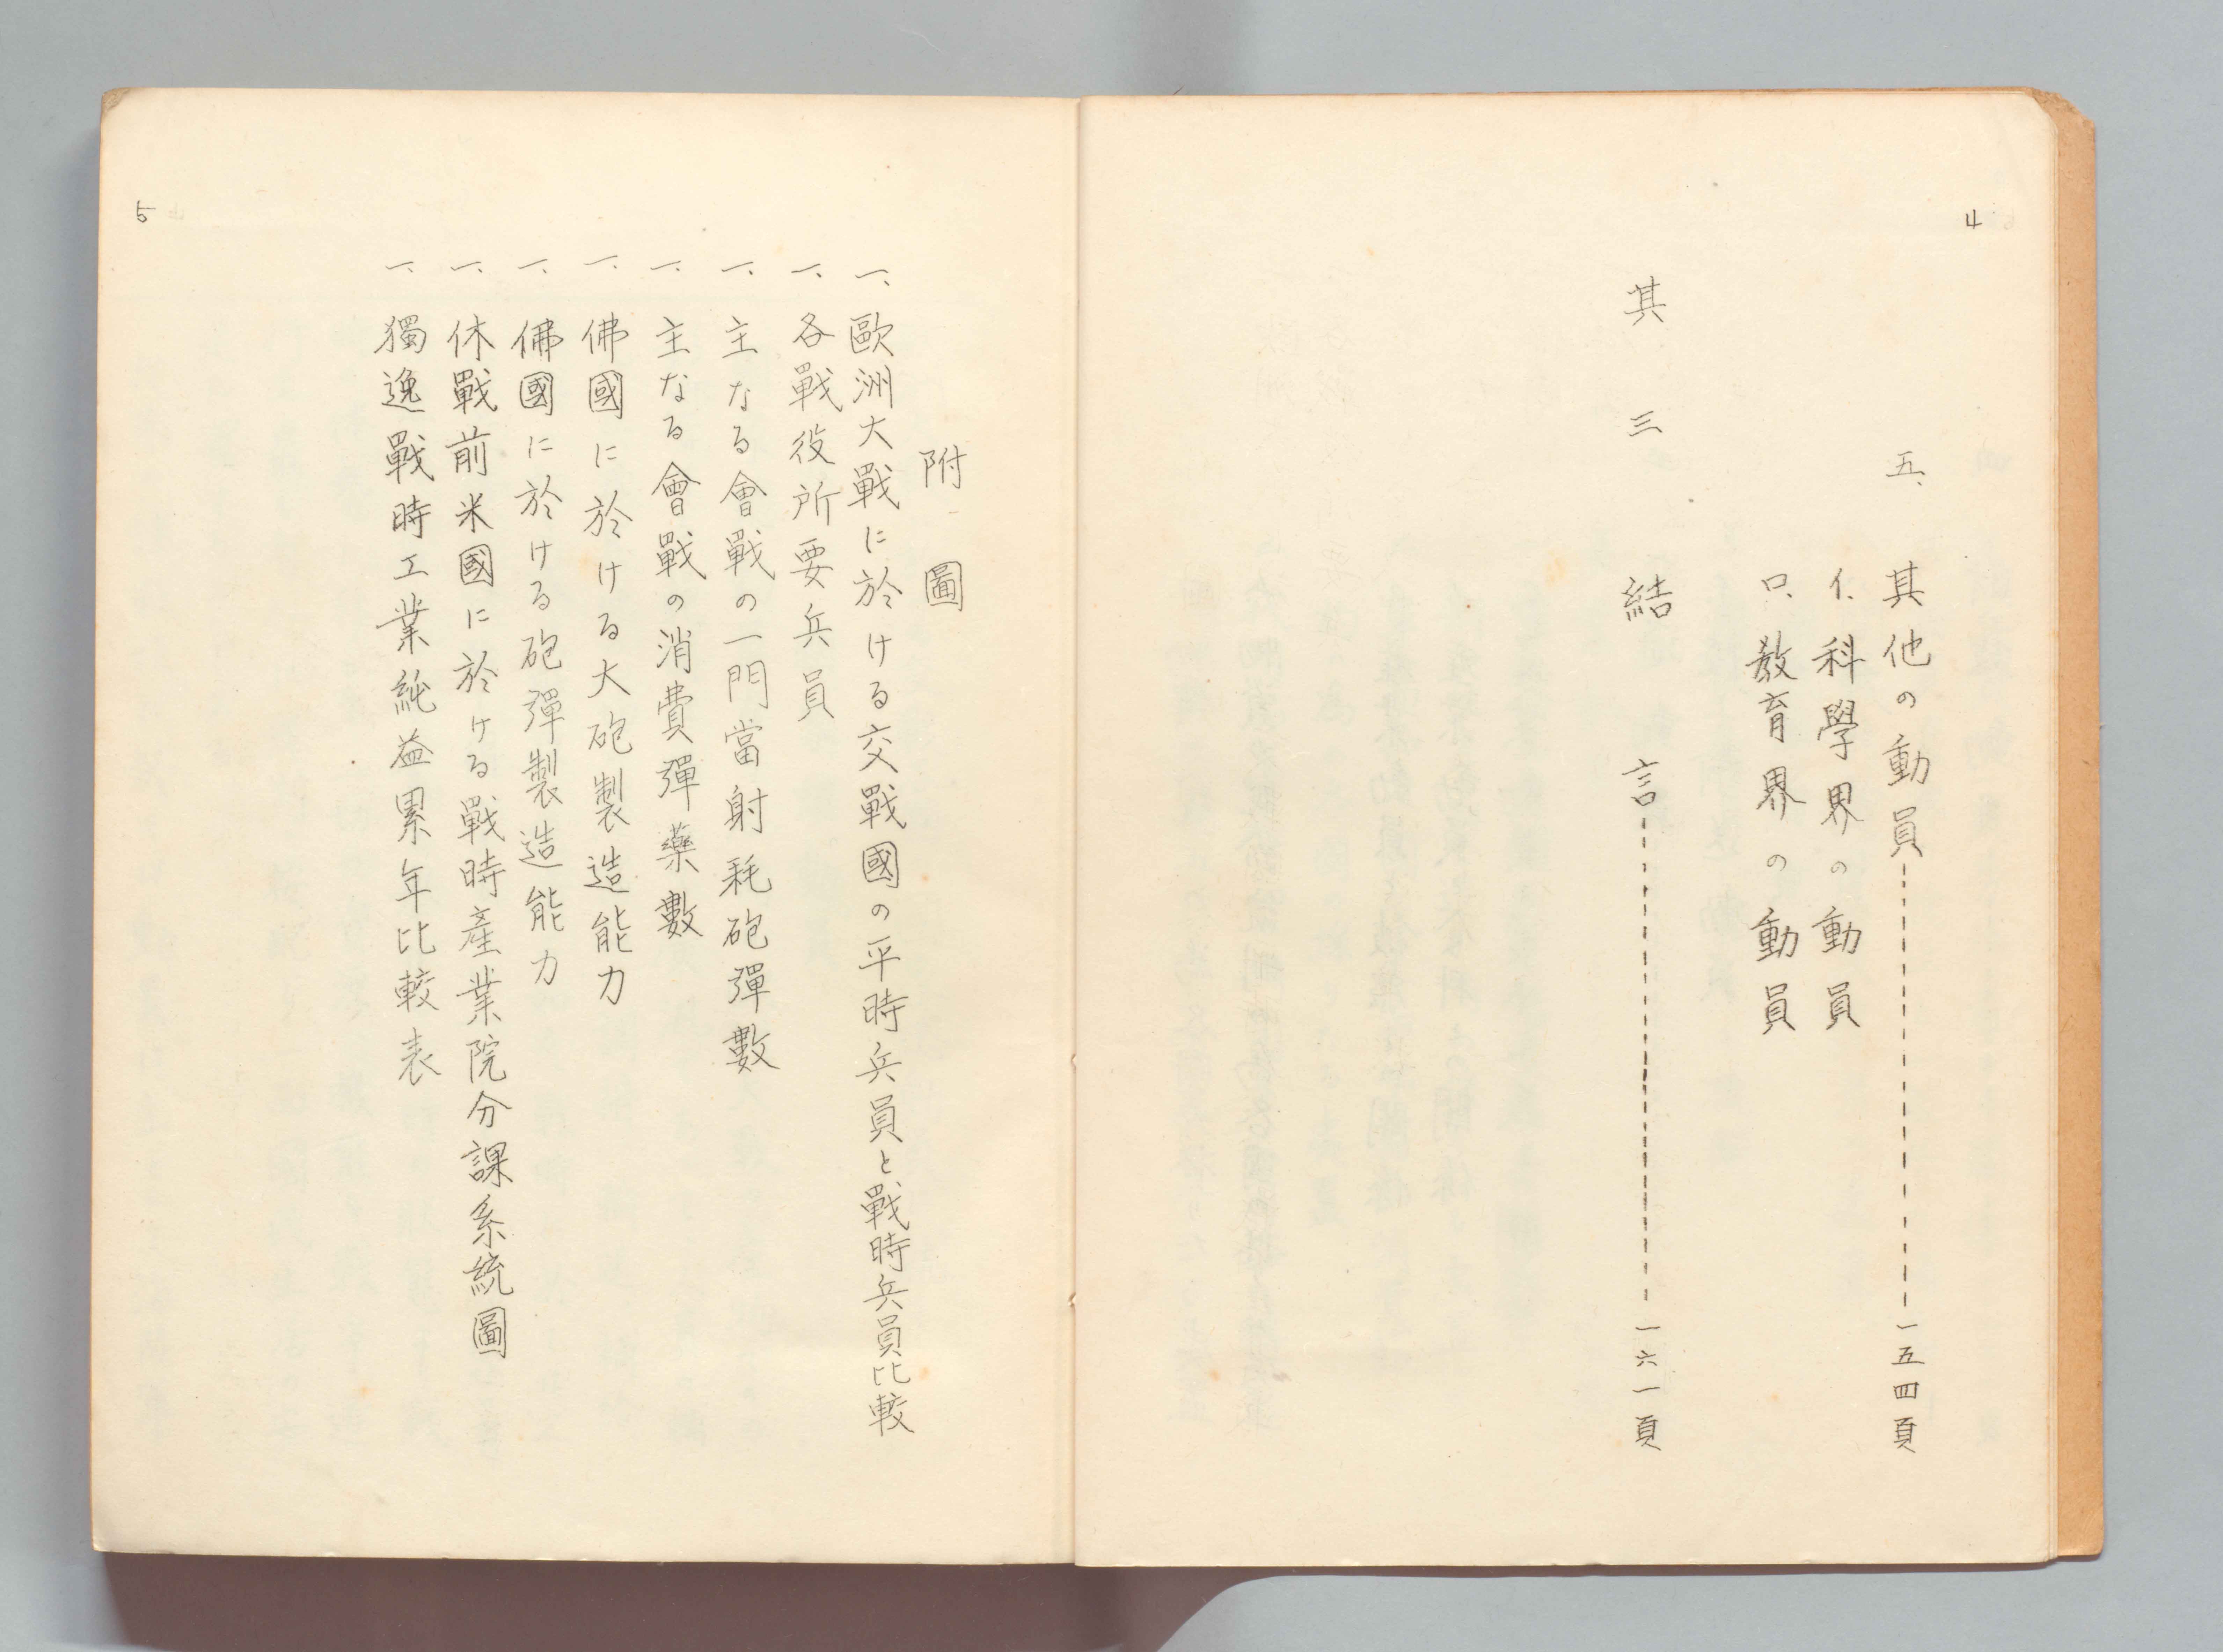 4
五、其他の動員一五四頁
イ、科學界の動員
ロ、敎育界の動員
其三 結言一六一頁
5
附圖
一、歐洲大戰に於ける交戰國の平時兵員と戰時兵員比較
一、各戰役所要兵員
一、主なる會戰の一門當射耗砲彈數
一、主なる會戰の消費彈藥數
一、佛國に於ける大砲製造能力
一、佛國に於ける砲彈製造能力
一、休戰前米國に於ける戰時產業院分課系統圖
一、獨逸戰時工業純益累年比較表